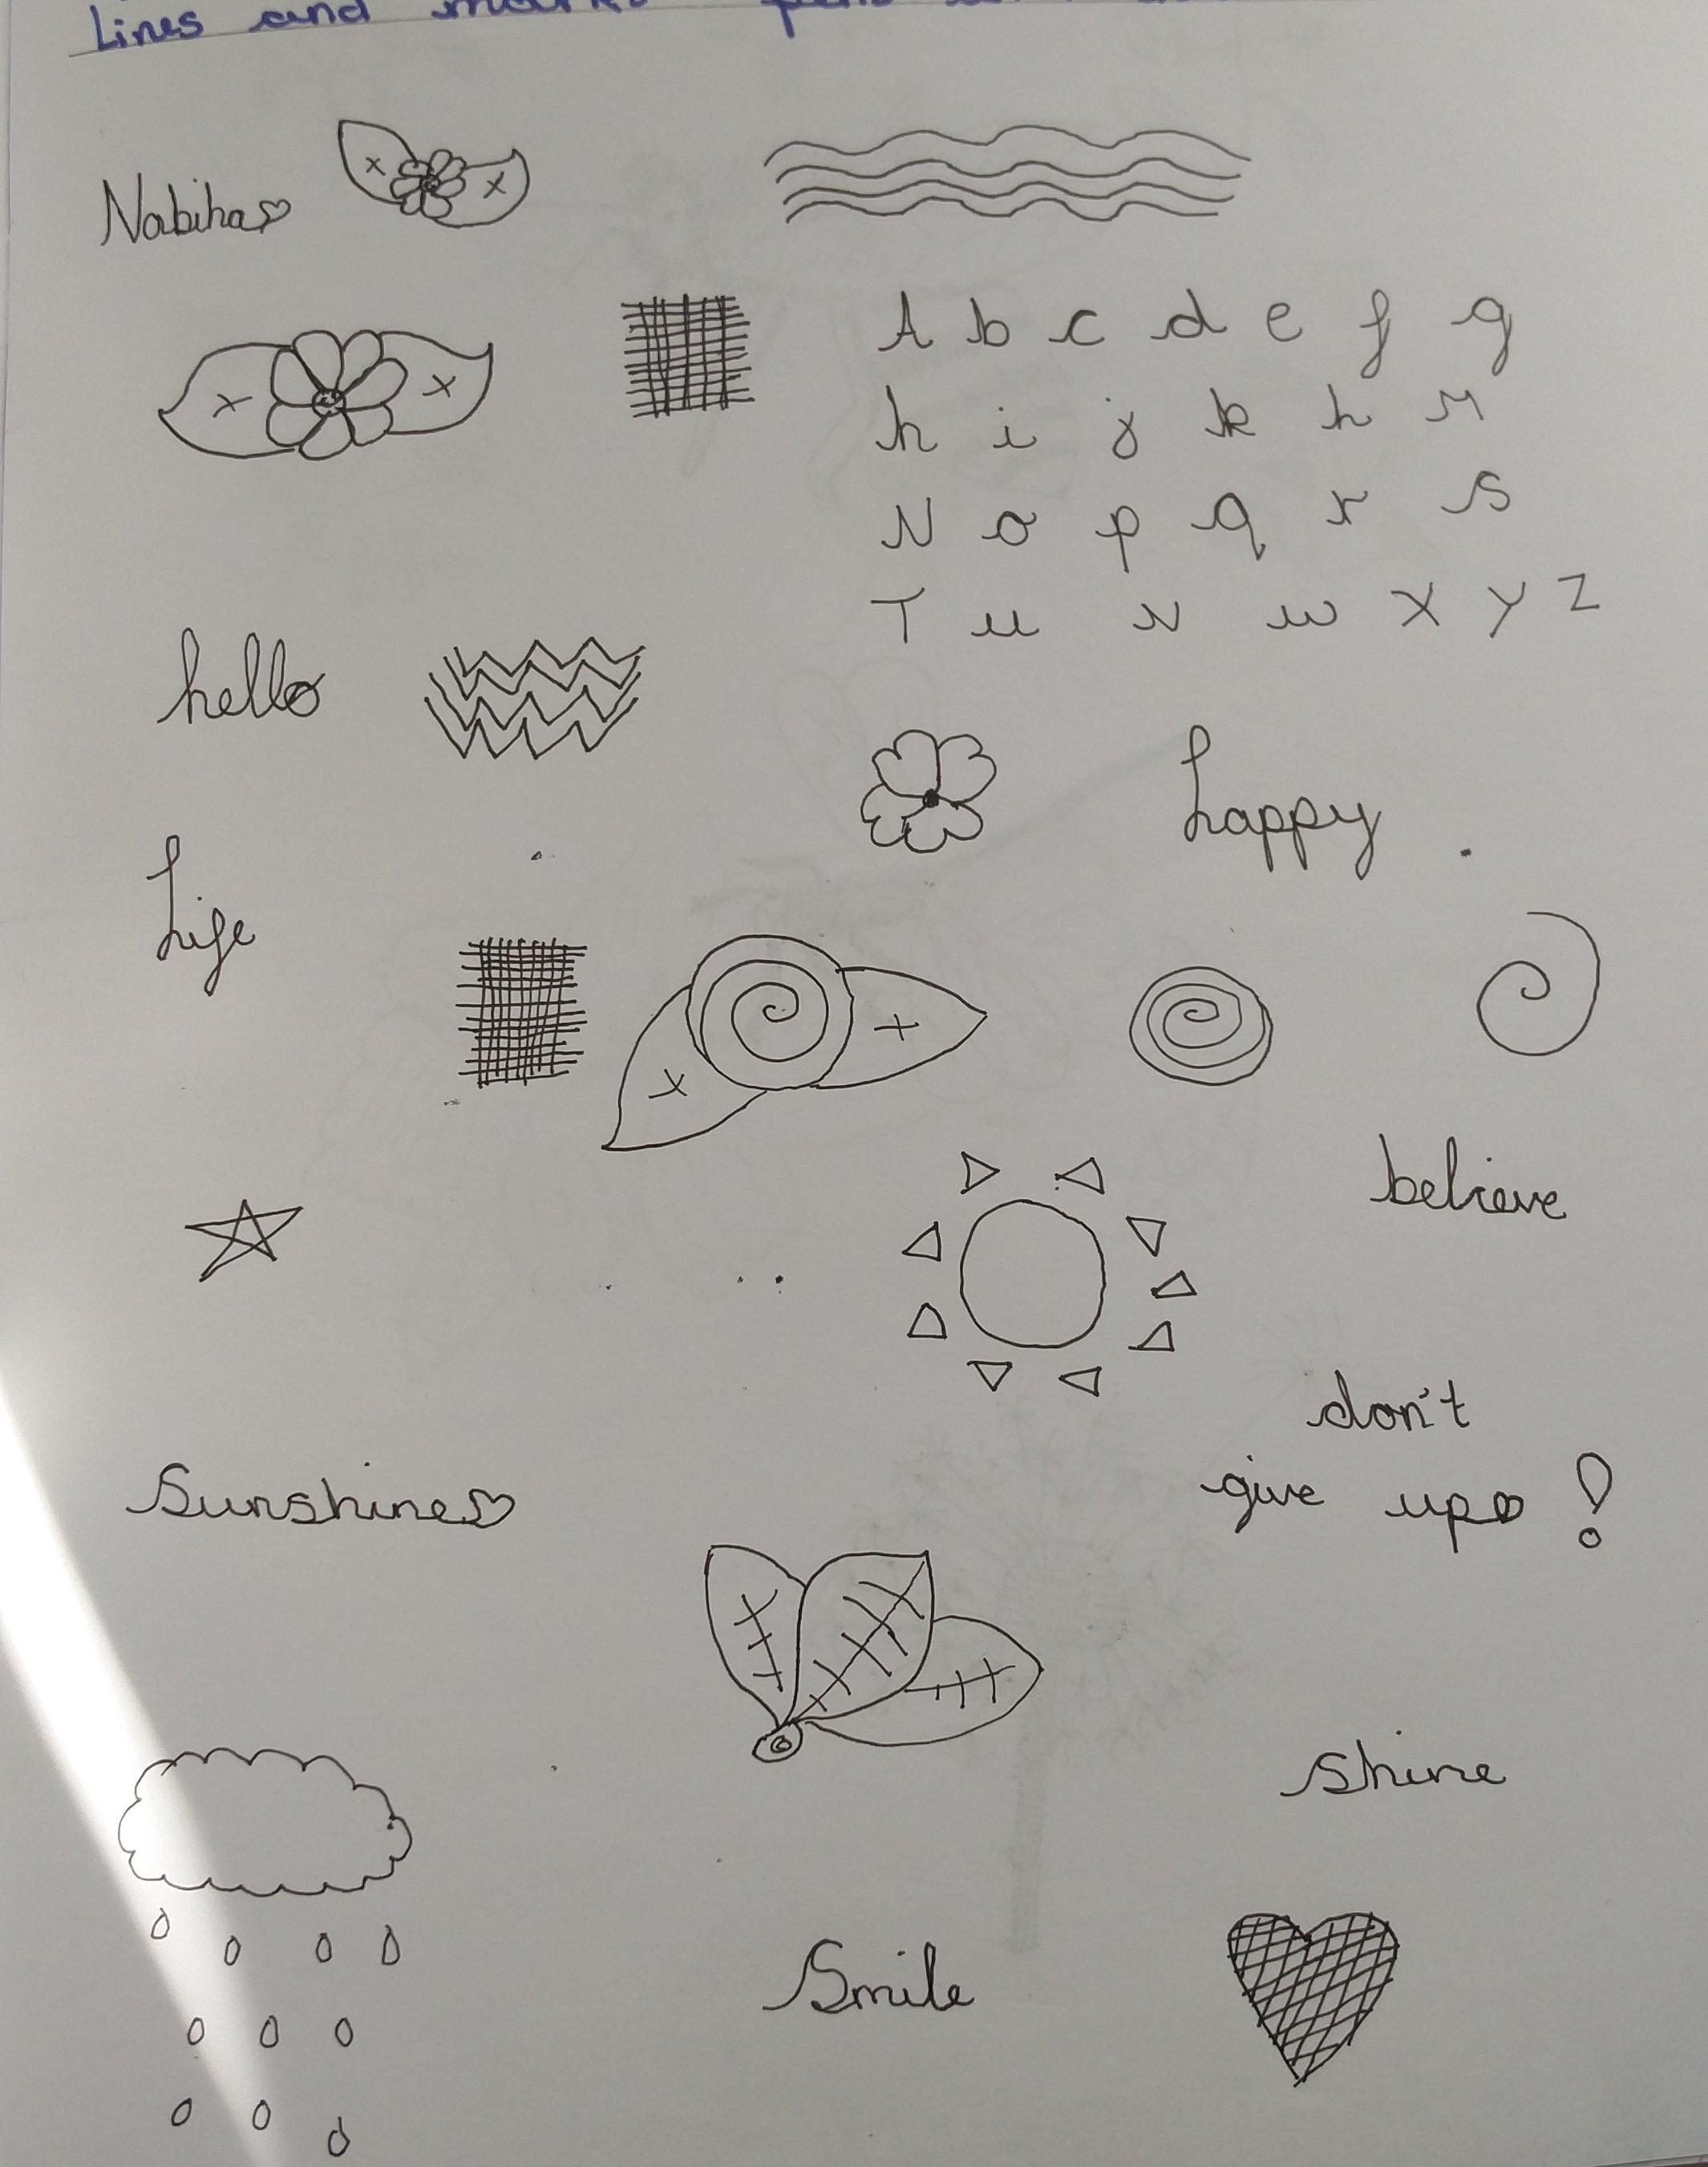 Lines and marks
Nabiha
A b c d e f g
h i j k h M
N o p q r s
T u v w x y z
hello
happy
Life
believe
don't
give up!
Sunshine
shine
Smile